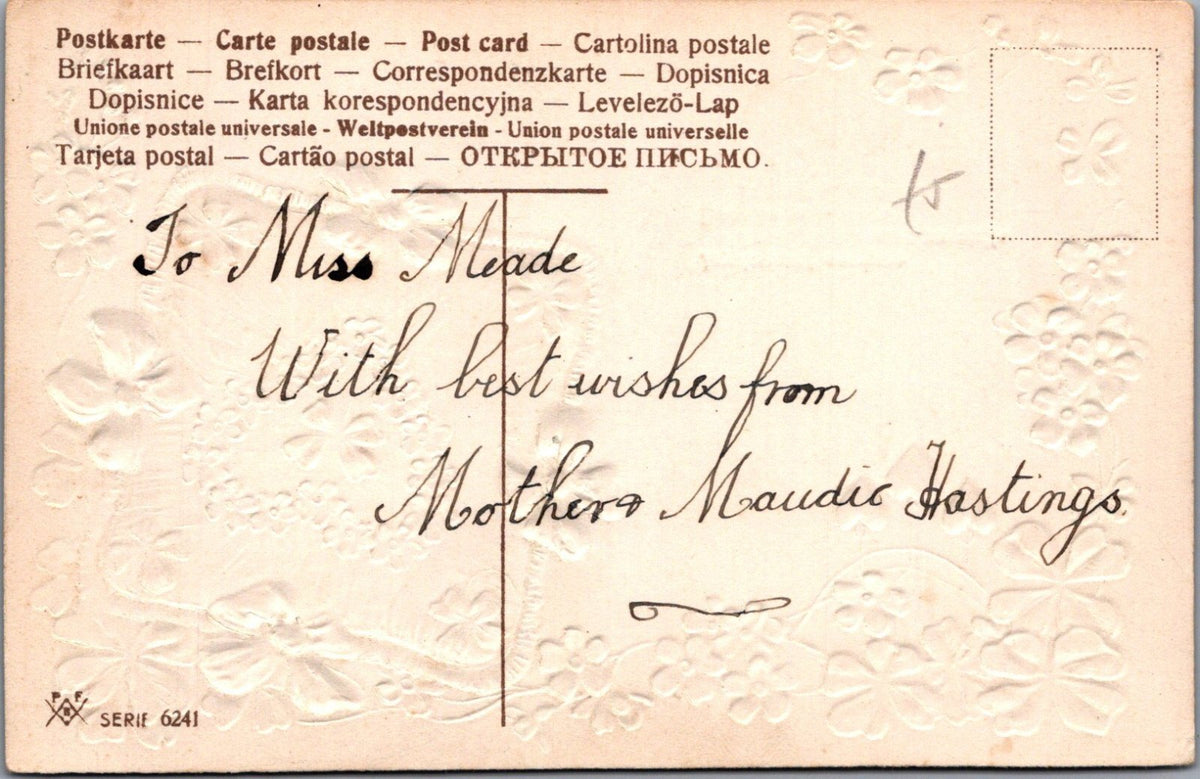 Postkarte — Carte postale — Post card — Cartolina postale
Briefkaart — Brefkort — Correspondenzkarte — Dopisnica
Dopisnice — Karta korespondencyjna — Levelezö-Lap
Unione postale universale - Weltpostverein - Union postale universelle
Tarjeta postal — Cartão postal — ОТКРЫТОЕ ПИСЬМО.
To Miss Meade
With best wishes from
Mother & Maudie Hastings.
P F B
SERIE 6241